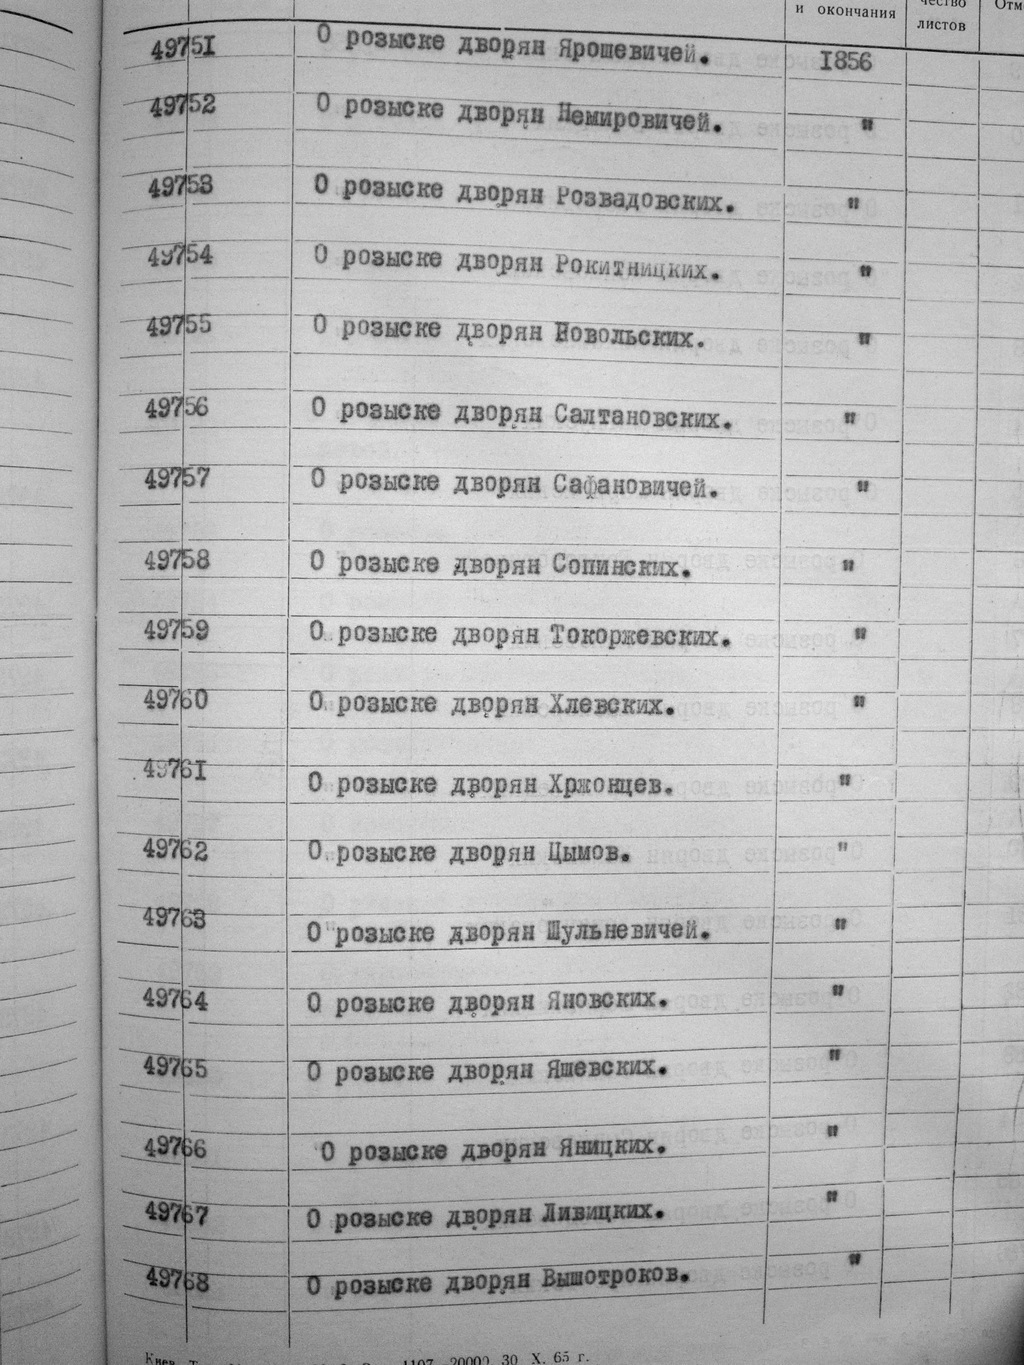 и окончания
чество
листов
Отм
49751 О розыске дворян Ярошевичей. 1856
49752 О розыске дворян Немировичей. "
49753 О розыске дворян Розвадовских. "
49754 О розыске дворян Рокитницких. "
49755 О розыске дворян Новольских. "
49756 О розыске дворян Салтановских. "
49757 О розыске дворян Сафановичей. "
49758 О розыске дворян Сопинских. "
49759 О розыске дворян Токоржевских. "
49760 О розыске дворян Хлевских. "
49761 О розыске дворян Хржонцев. "
49762 О розыске дворян Цымов. "
49763 О розыске дворян Шульневичей. "
49764 О розыске дворян Яновских. "
49765 О розыске дворян Яшевских. "
49766 О розыске дворян Яницких. "
49767 О розыске дворян Ливицких. "
49768 О розыске дворян Вышотроков. "
Киев 1107 —20000 30 X. 65 г.